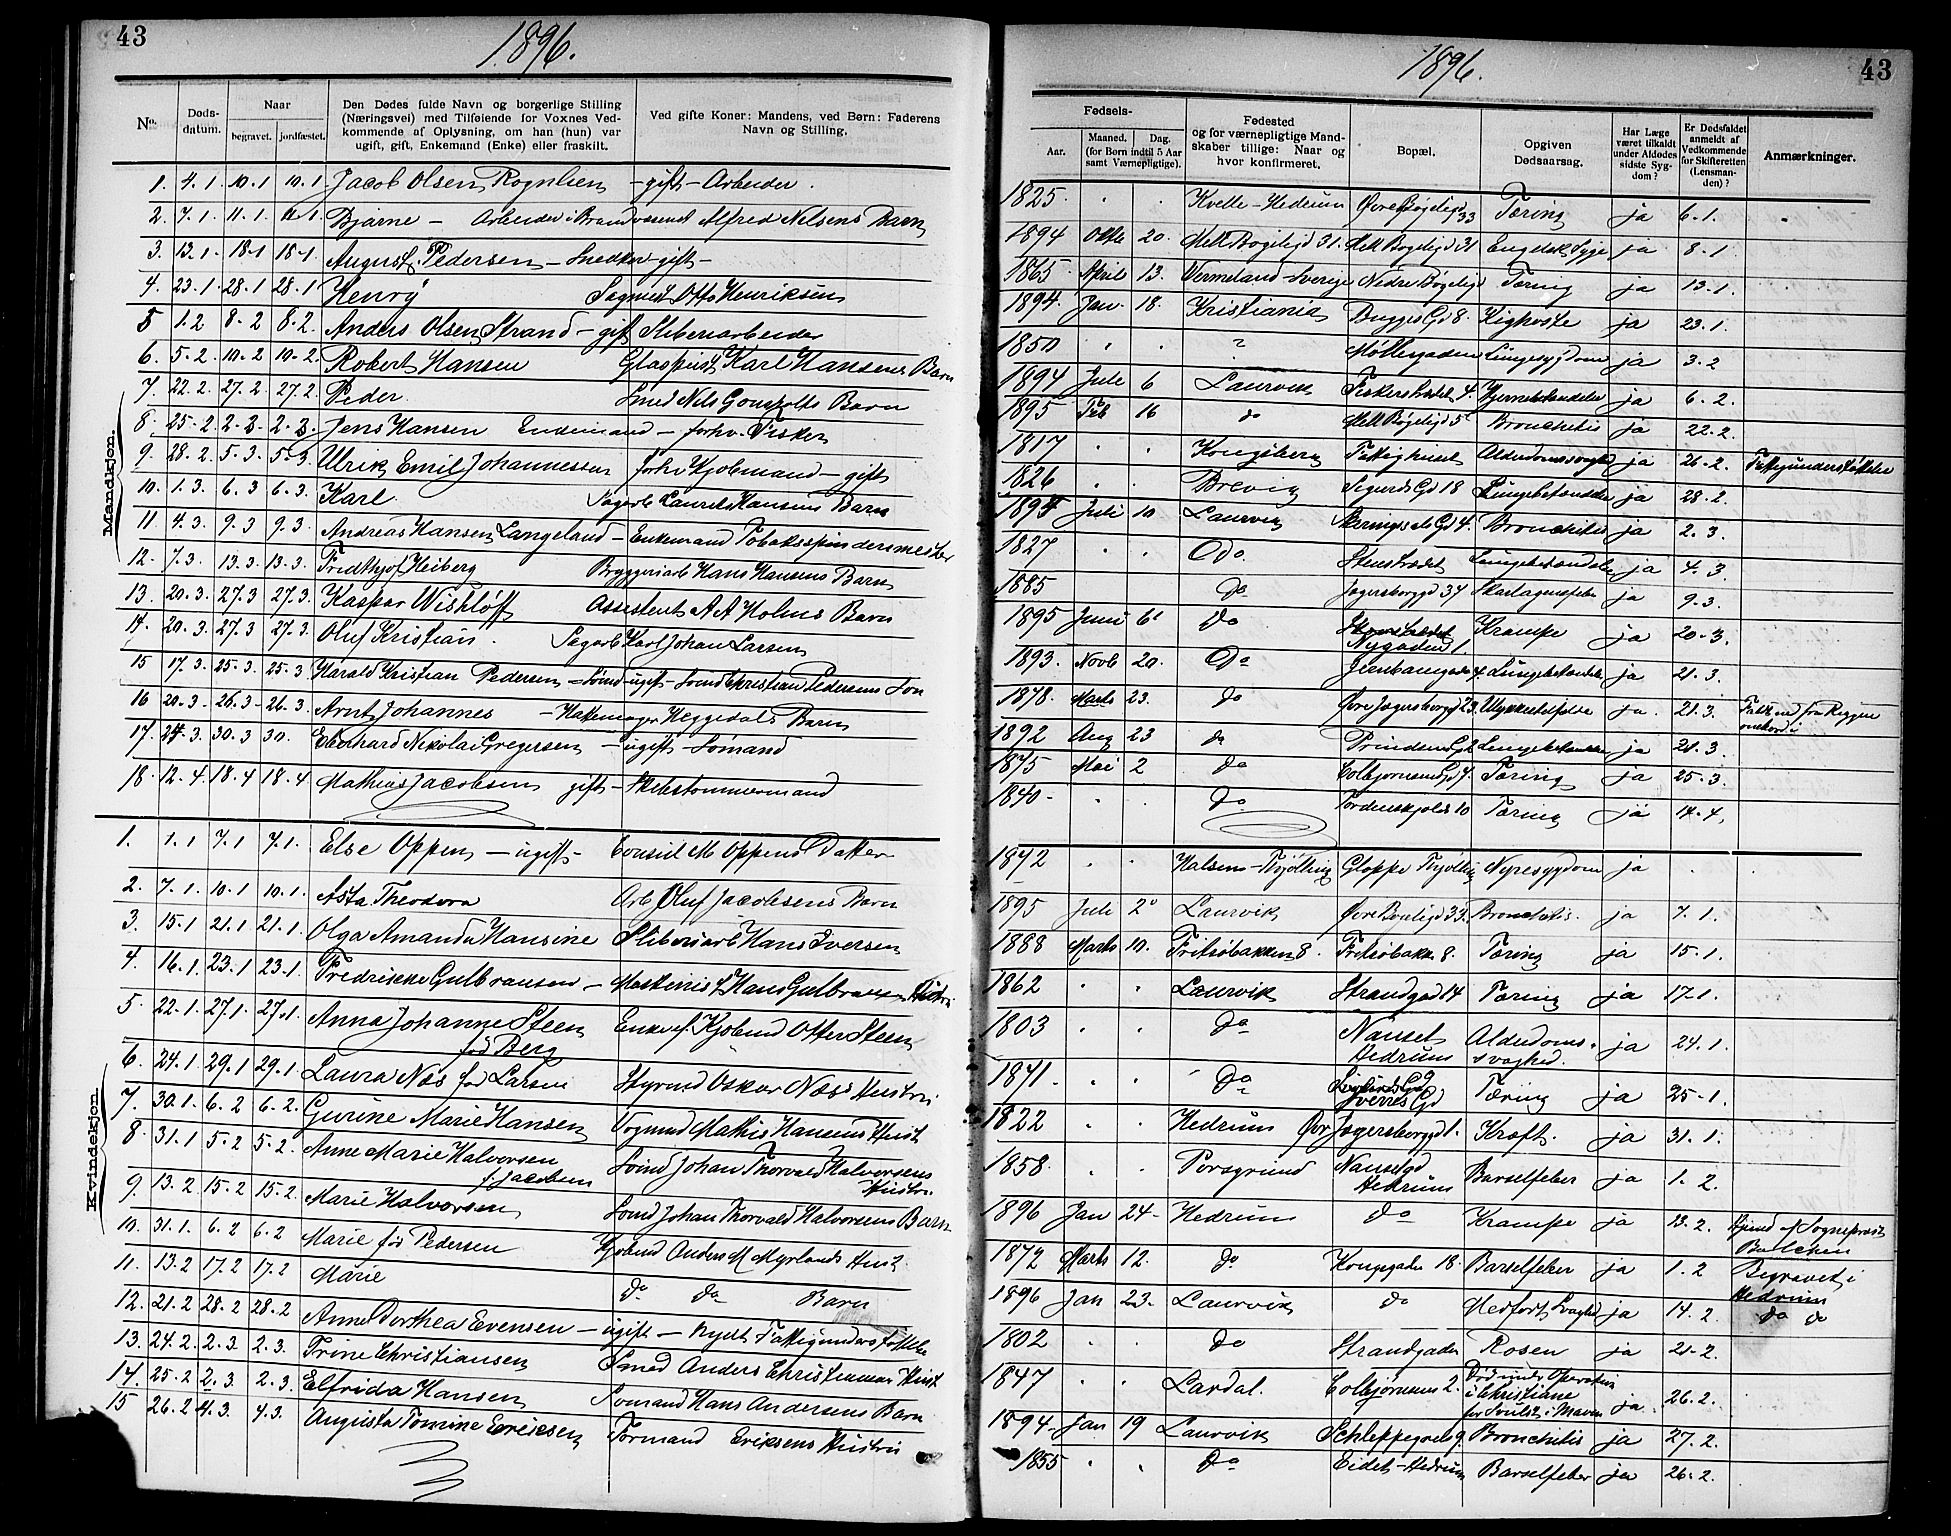 43
1896.
No.
Døds-
datum.
Naar
begravet. jordfæstet.
Den Dødes fulde Navn og borgerlige Stilling
(Næringsvei) med Tilføiende for Voxnes Ved-
kommende af Oplysning, om han (hun) var
ugift, gift, Enkemand (Enke) eller fraskilt.
Ved gifte Koner: Mandens, ved Børn: Faderens
Navn og Stilling.
Mandkjøn.
1. 4.1. 10.1 10.1 Jacob Olsen Rognlien - gift - Arbeider.
2. 7.1. 11.1. 11.1. Bjarne - Arbeider i Brandvæsenet Alfred Nilsens Barn
3. 13.1 18.1 18.1. August Pedersen - Snedker gift -
4. 23.1. 28.1 28.1 Henry Sagmest Otto Henriksen
5 1.2 8.2 8.2. Anders Olsen Strand - gift Sliberiarbeider
6. 5.2. 10.2 10.2. Robert Hansen Glaspust Karl Hansens Barn
7. 22.2. 27.2. 27.2. Peder. Smed Nils Gonsholts Barn
8. 25.2. 2.3. 2.3. Jens Hansen Enkemand - forhv. Fisker
9. 28.2. 5.3. 5.3. Ulrik Emil Johannessen forhv Kjøbmand - gift
10. 1.3. 6.3 6.3. Karl. Sagarb Laurits Hansens Barn
11. 4.3. 9.3 9.3. Andreas Hansen Langeland - Enkemand Tobaksspindermester
12. 7.3. 13.3. 13.3. Fridthjof Heiberg Bryggeriarb Hans Hansens Barn
13. 20.3. 27.3 27.3. Kaspar Wishløff Assistent A A Holms Barn
14. 20.3. 27.3 27.3. Oluf Kristian. Sagarb Karl Johan Larsen
15 17.3. 25.3. 25.3 Harald Kristian Pedersen - Sømd - ugift - Sømd Christian Pedersens Søn
16 20.3 - 26.3 - 26.3. Arnt Johannes - Hattemager Heggedals Barn
17. 24.3. 30.3 30. Eberhard Nikolai Gregersen - ugift - Sømand
18. 12.4. 18.4 18.4 Mathias Jacobsen gift - Skibstømmermand
Kvindekjøn.
1. 1.1 7.1 7.1. Else Oppen - ugift - Consul M Oppens Datter
2. 7.1. 10.1 10.1. Asta Theodora Arb Oluf Jacobsens Barn
3. 15.1 21.1 21.1. Olga Amanda Hansine Sliberiarb Hans Iversen
4. 16.1. 23.1 23.1. Fredrikke Gulbransen - Maskinist Hans Gulbransens Hustru
5. 22.1. 27.1. 27.1. Anna Johanne Steen Enke ef. Kjøbmd Otter Steen
fød Berg
6. 24.1. 29.1 29.1. Laura Næs fød Larsen Styrmd Oskar Næss Hustru
7. 30.1. 6.2 6.2. Gurine Marie Hansen Vognmd Mathis Hansens Hust
8. 31.1 5.2 5.2. Anne Marie Halvorsen Sømd Johan Thorvald Halvorsens
f. Jacobsen Hustru.
9. 13.2 15.2 15.2. Marie Halvorsen Sømd Johan Thorvald Halvorsens Barn
10. 31.1. 6.2 6.2 Marie fød Pedersen Kjøbmd Anders M Myrlands Hust.
11. 13.2 17.2 17.2 Marie do do Barn
12. 21.2 28.2 28.2 Anne Dorthea Evensen - ugift - Nydt Fattigunderstøttelse
13. 24.2. 2.3. 2.3. Trine Christiansen Smed Anders Christiansens Hust
14. 25.2 2.3. 2.3. Elfrida Hansen Sømand Hans Andersens Barn
15 26.2 4.3. 4.3. Augusta Tomine Eriksen Tørmand Eriksens Hustru
1896.
43
Fødsels-
Aar.
Maaned, Dag.
(for Børn indtil 5 Aar
samt Værnepligtige).
Fødested
og for værnepligtige Mand-
skaber tillige: Naar og
hvor konfirmeret.
Bopæl.
Opgiven
Dødsaarsag.
Har Læge
været tilkaldt
under Afdødes
sidste Syg-
dom?
Er Dødsfaldet
anmeldt af
Vedkommende
for Skifteretten
(Lensman-
den)?
Anmærkninger.
1825. Kvelle - Hedrum Øvre Bøgeligd 33 Tæring ja 6.1.
1894 Oktb 20. Mell Bøgeligd 31. Mell Bøgeligd 31 Engelsk Syge ja 8.1
1865 April 13. Vermeland - Sverige Nedre Bøgeligd Tæring ja 13.1.
1894. Jan. 18. Kristiania Bugges Gd 8. Kighoste ja 23.1.
1850 ? Møllergaden Lungesygdom ja 3.2
1894 Juli 6 Laurvik Fiskerstrædet 4. Hjernebetændelse ja 6.2.
1895 Feb 16 do Mell Bøgeligd 5 Bronchitis ja 22.2.
1817 Kongsberg Fattighuset Alderdomssvaghed ja 26.2. Fattigunderstøttelse
1826 Brevig Sigurds Gd 18 Lungebetændelse ja 28.2.
1894 Juli 10 Laurvik Skringssals Gd 4. Bronchitis ja 2.3.
1827 Do. Stenstrædet Lungebetændelse ja 4.3.
1885 do Jegersborggd 34 Skarlagensfeber ja 9.3.
1895 Juni 6 do Nygaden 1 Krampe ja 20.3.
1893. Novb 20. Do Jernbanegaden 4. Lungebetændelse ja 21.3.
1878. Marts 23. do Øvre Jegersborggd 23. Ulykkestilfælde ja. 21.3. Faldt ned fra Riggen
ombord i
1892 Aug 23 do Prindsens Gd 2 Lungebetændelse ja 21.3.
1875 Mai 2 do Colbjørnsens Gd 4. Tæring ja 25.3.
1840 - do Tordenskjolds 10 Tæring ja 14.4.
1842 Halsen - Thjølling Gloppe Thjølling Nyresygdom ja
1895 Juli 2 Laurvik Øvre Bøgeligd 33. Bronchitis. ja 7.1.
1888 Marts 10. Fritsøbakken 8. Fritsøbakk 8. Tæring ja 15.1.
1862 Laurvik Strandgad 14 Tæring ja 17.1.
1803 do Nanset Alderdoms-
Hedrum svaghed. ja 24.1.
1841. do Sverres Gd Tæring ja 25.1.
1822 Hedrum Øvr Jegersborggd 1. Kræft. ja 31.1.
1858. Porsgrund Nansetgd
Hedrum Barselfeber ja 1.2.
1896 Jan 24 - Hedrum do Krampe ja 13.2. Hjemd af Sogneprest
Balchen
1872 Marts 12. do Kongegaden 18. Barselfeber ja 1.2 Begravet i
Hedrum
1896 Jan 23. Laurvik do Medfødt Svaghed ja 14.2. do do
1802 do Strandgaden Rosen ja 21.2.
1847 Lardal. Colbjørnsens 2. Død under Operation
i Christiania
for Svulst i Maven ja. 26.2.
1894. Jan 19 Laurvik Schleppegrels 9. Bronchitis ja 27.2.
1855 do Eidet - Hedrum Barselfeber ja 26.2.